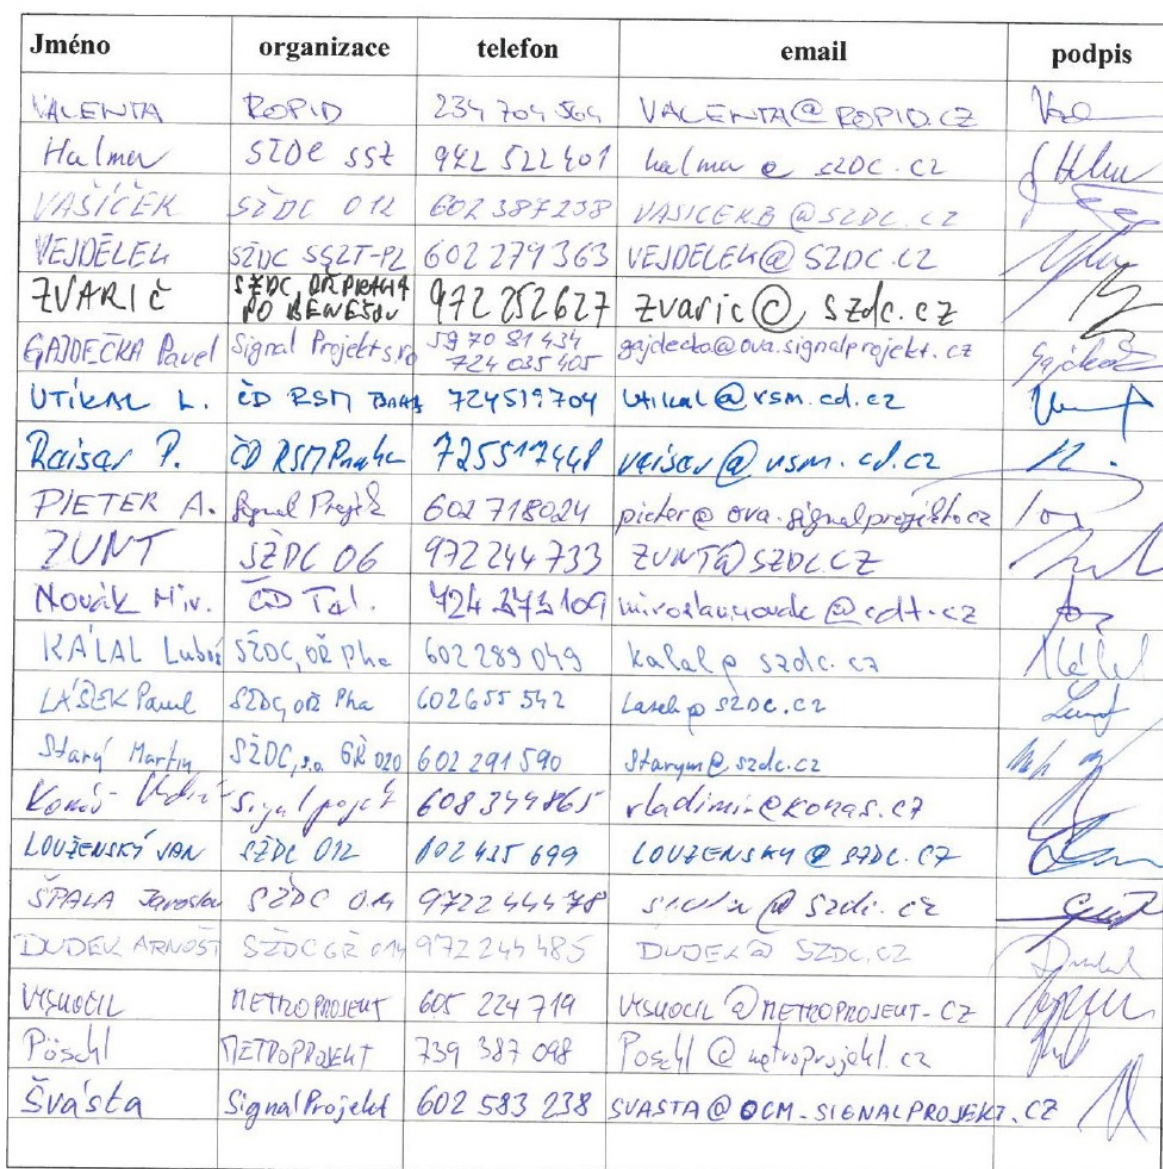 Jméno organizace telefon email podpis
VALENTA ROPID 234 704 564 VALENTA@ROPID.CZ
Halmer SŽDC SSZ 942 522 401 halmer@szdc.cz
VAŠÍČEK SŽDC O12 602 387 238 VASICEKB@SZDC.CZ
VEJDĚLEK SŽDC SSZT-PL 602 279 363 VEJDELEK@SZDC.CZ
ZVARIČ SŽDC, OŘ PRAHA PO BENEŠOV 972 252 627 zvaric@szdc.cz
GAJDEČKA Pavel Signal Projekt s.r.o 59 70 81 434 724 035 405 gajdecka@ova.signalprojekt.cz
UTÍKAL L. ČD RSM 724519704 utikal@rsm.cd.cz
Raisar P. ČD RSM Praha 725517448 raisar@rsm.cd.cz
PIETER A. Signal Projekt 602 718024 pieter@ova.signalprojekt.cz
ZUNT SŽDC O6 972 244 733 ZUNT@SZDC.CZ
Novák Mir. ČD Tel. 724 109 miroslav.novak@cdt.cz
KÁLAL Luboš SŽDC, OŘ Pha 602 289 049 kalal@szdc.cz
LÁSEK Pavel SŽDC, OŘ Pha 602 655 542 Lasek@SZDC.CZ
Starý Martin SŽDC, s.o. GŘ O20 602 291 590 Starym@szdc.cz
Konáš Signal projekt 608 344 865 vladimir@konas.cz
LOUŽENSKÝ JAN SŽDC O12 602 435 699 LOUZENSKY@SZDC.CZ
ŠPALA Jaroslav SŽDC O14 972244478 @szdc.cz
DUDEK ARNOŠT SŽDC GŘ O14 972 244 485 DUDEK@SZDC.CZ
VYSKOČIL METROPROJEKT 605 224 719 VYSKOCIL@METROPROJEKT.CZ
Pöschl METROPROJEKT 739 387 098 Poschl@metroprojekt.cz
Švásta Signal Projekt 602 583 238 SVASTA@OCM.SIGNALPROJEKT.CZ